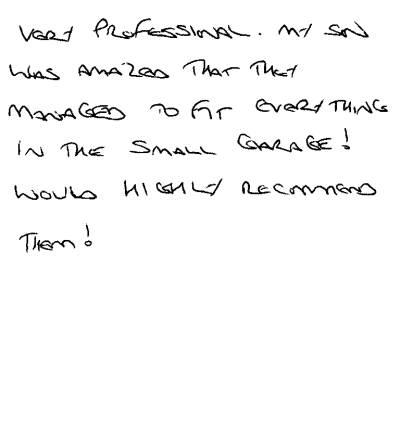 VERY PROFESSIONAL. MY SON
WAS AMAZED THAT THEY
MANAGED TO FIT EVERYTHING
IN THE SMALL GARAGE!
WOULD HIGHLY RECOMMEND
THEM!